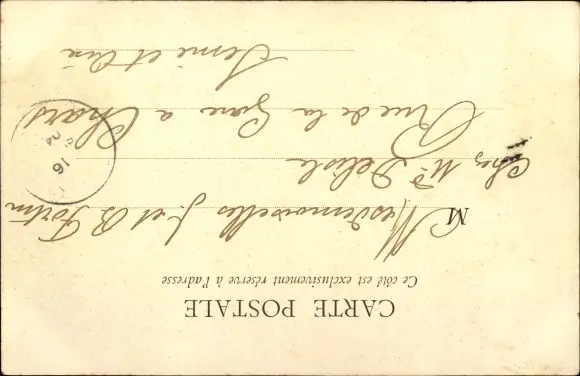 CARTE POSTALE
Ce côté est exclusivement réservé à l'adresse
M Mesdemoiselles J. et B. Fortin
Chez Mr Delisle
Rue de la Gare a Chars
Seine et Oise
16
04